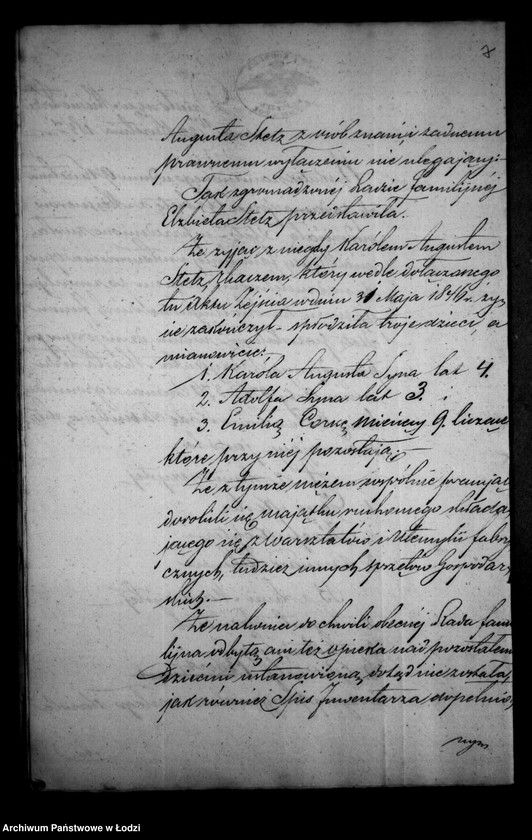 7
Augusta Stetz z osób znami i żadnemu
prawnemu wyłączeniu nie ulegający:
Tak zgromadzonej Radzie familijnej
Elżbieta Stetz przedstawiła.
Że żyjąc z niegdy Karolem Augustem
Stetz, tkaczem, który wedle dołączonego
tu Aktu Zejścia w dniu 31 Maja 1846 r. ży
cie zakończył spłodziła troje dzieci, a
mianowicie:
1. Karóla Augusta Syna lat 4.
2. Adolfa Syna lat 3. i
3. Emilią Corkę miesięcy 9. liczące
które przy niej pozostają.
Że z tymże mężem wspólnie pracując
dorobili się majątku ruchomego składa
jącego się z warsztatów i utensylii fabry
cznych, tudzież innych sprzętów Gospodar
skich.
Że nakoniec do chwili obecnej Rada fami
lijna odbytą ani też opieka nad pozostałem
Dziećmi ustanowioną dotąd nie została,
jak również Spis Inwentarza dopełnio
nym
Archiwum Państwowe w Łodzi